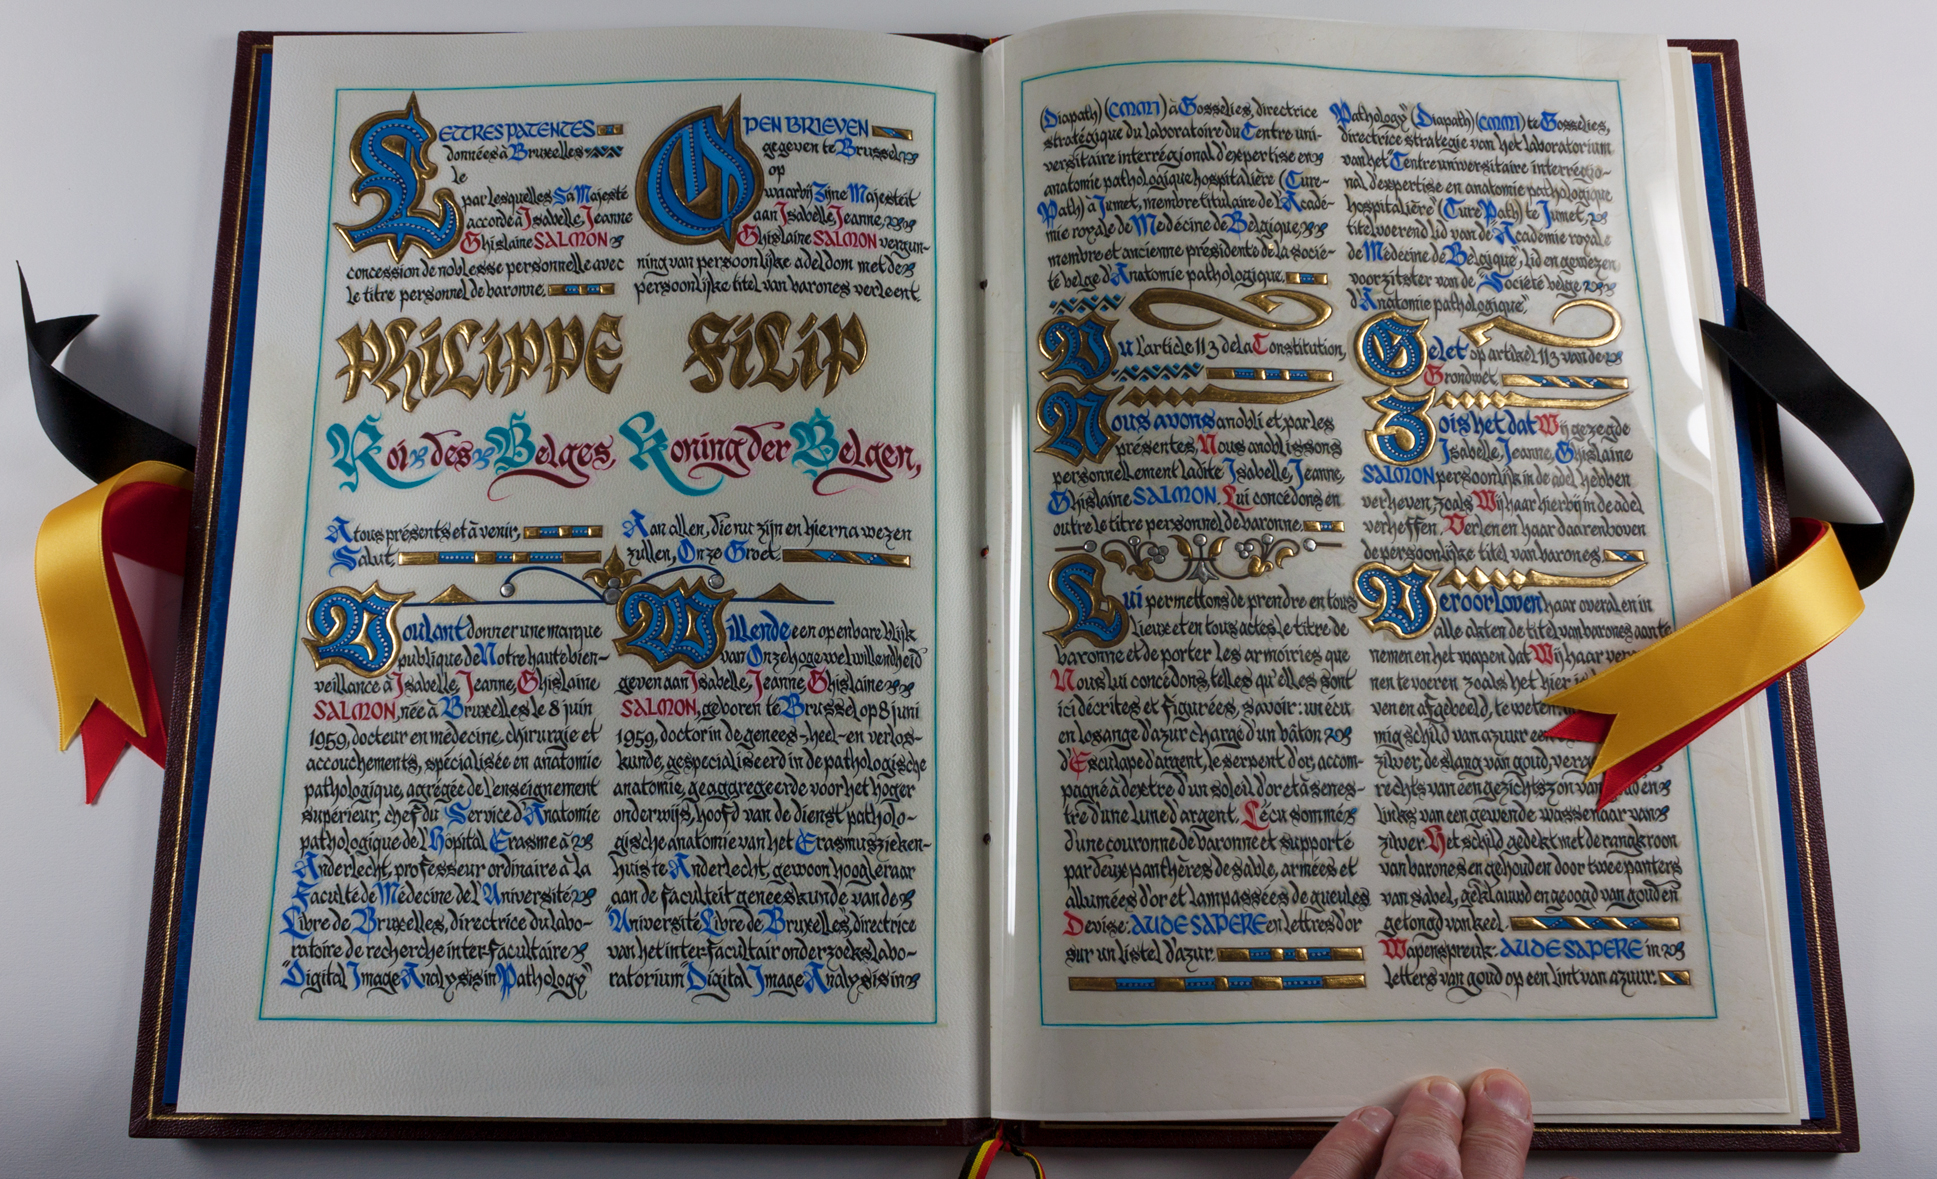 LETTRES PATENTES
données à Bruxelles
le
par lesquelles Sa Majesté
accorde à Isabelle, Jeanne
Ghislaine SALMON
concession de noblesse personnelle avec
le titre personnel de baronne.
OPEN BRIEVEN
gegeven te Brussel
op
waarbij Zijne Majesteit
aan Isabelle, Jeanne,
Ghislaine SALMON vergun-
ning van persoonlijke adeldom met de
persoonlijke titel van barones verleent.
PHILIPPE
FILIP
Roi des Belges,
Koning der Belgen,
A tous présents et à venir,
Salut.
Aan allen, die nu zijn en hierna wezen
zullen, Onze Groet.
Voulant donner une marque
publique de Notre haute bien-
veillance à Isabelle, Jeanne, Ghislaine
SALMON, née à Bruxelles le 8 juin
1959, docteur en médecine, chirurgie et
accouchements, spécialisée en anatomie
pathologique, agrégée de l'enseignement
supérieur, chef du Service d'Anatomie
pathologique de l'Hôpital Erasme à
Anderlecht, professeur ordinaire à la
Faculté de Médecine de l'Université
Libre de Bruxelles, directrice du labo-
ratoire de recherche inter-facultaire
"Digital Image Analysis in Pathology"
Willende een openbare blijk
van Onze hoge welwillendheid
geven aan Isabelle, Jeanne, Ghislaine
SALMON, geboren te Brussel op 8 juni
1959, doctor in de genees-, heel- en verlos-
kunde, gespecialiseerd in de pathologische
anatomie, geaggregeerde voor het hoger
onderwijs, hoofd van de dienst patholo-
gische anatomie van het Erasmuszieken-
huis te Anderlecht, gewoon hoogleraar
aan de faculteit geneeskunde van de
"Université Libre de Bruxelles", directrice
van het inter-facultair onderzoekslabo-
ratorium "Digital Image Analysis in
(Diapath) (CMMI) à Gosselies, directrice
stratégique du laboratoire du Centre uni-
versitaire interrégional d'expertise en
anatomie pathologique hospitalière (Cure-
Path) à Jumet, membre titulaire de l'Acadé-
mie royale de Médecine de Belgique,
membre et ancienne présidente de la Socié-
té belge d'Anatomie pathologique.
Vu l'article 113 de la Constitution,
Nous avons anobli et, par les
présentes, Nous anoblissons
personnellement ladite Isabelle, Jeanne,
Ghislaine SALMON. Lui concédons en
outre le titre personnel de baronne.
Lui permettons de prendre en tous
lieux et en tous actes, le titre de
baronne et de porter les armoiries que
Nous lui concédons, telles qu'elles sont
ici décrites et figurées, savoir: un écu
en losange d'azur chargé d'un bâton
d'Esculape d'argent, le serpent d'or, accom-
pagné à dextre d'un soleil d'or et à senes-
tre d'une lune d'argent. L'écu sommé
d'une couronne de baronne et supporté
par deux panthères de sable, armées et
allumées d'or et lampassées de gueules
Devise: AUDE SAPERE en lettres d'or
sur un listel d'azur.
Pathology" (Diapath) (CMMI) te Gosselies,
directrice strategie van het laboratorium
van het "Centre universitaire interrégio-
nal d'expertise en anatomie pathologique
hospitalière" (CurePath) te Jumet,
titelvoerend lid van de "Académie royale
de Médecine de Belgique", lid en gewezen
voorzitster van de "Société belge
d'Anatomie pathologique",
Gelet op artikel 113 van de
Grondwet.
Zo is het dat Wij gezegde
Isabelle, Jeanne, Ghislaine
SALMON persoonlijk in de adel hebben
verheven, zoals Wij haar hierbij in de adel
verheffen. Verlenen haar daarenboven
de persoonlijke titel van barones.
Veroorloven haar overal en in
alle akten de titel van barones aan te
nemen en het wapen dat Wij haar
nen te voeren zoals het hier
ven en afgebeeld, te weten:
mig schild van azuur
zilver, de slang van goud,
rechts van een gezichtszon van en
links van een gewende wassenaar van
zilver. Het schild gedekt met de rangkroon
van barones en gehouden door twee panters
van sabel, geklauwd en geoogd van goud en
getongd van keel.
Wapenspreuk: AUDE SAPERE in
letters van goud op een lint van azuur.